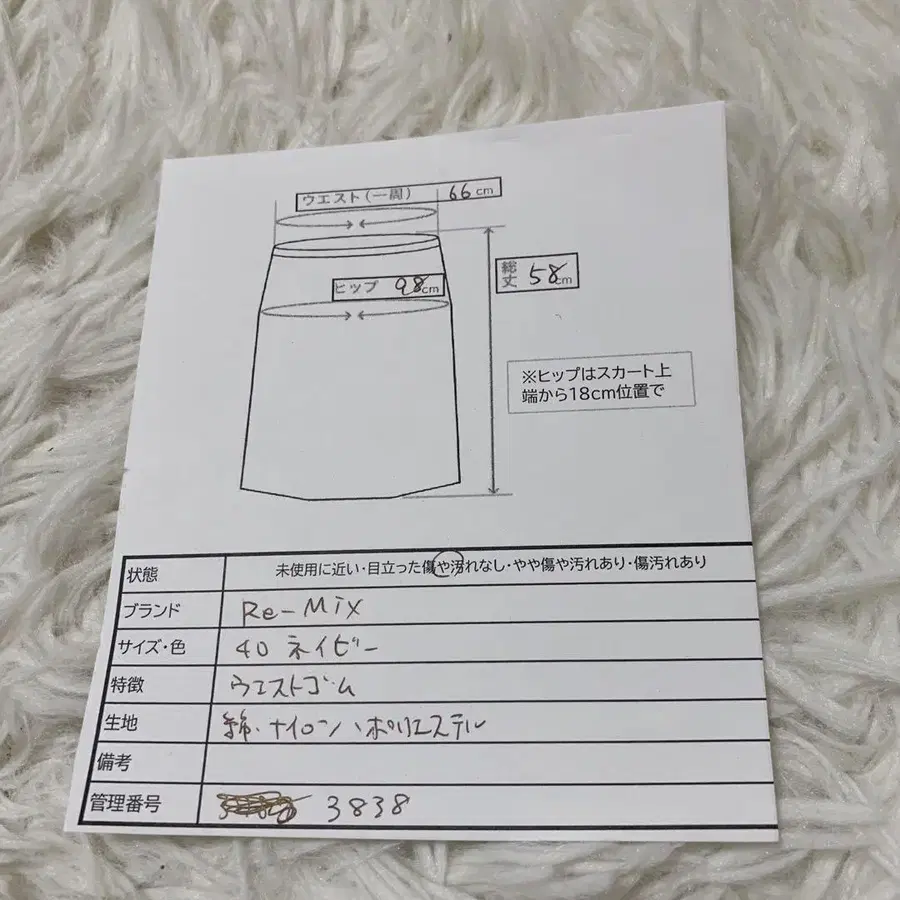 ウエスト(一周) 66cm
ヒップ 98cm
総丈 58cm
※ヒップはスカート上
端から18cm位置で
状態 未使用に近い・目立った傷や汚れなし・やや傷や汚れあり・傷汚れあり
ブランド Re-Mix
サイズ・色 40 ネイビー
特徴 ウエストゴム
生地 綿、ナイロン、ポリエステル
備考
管理番号 3838